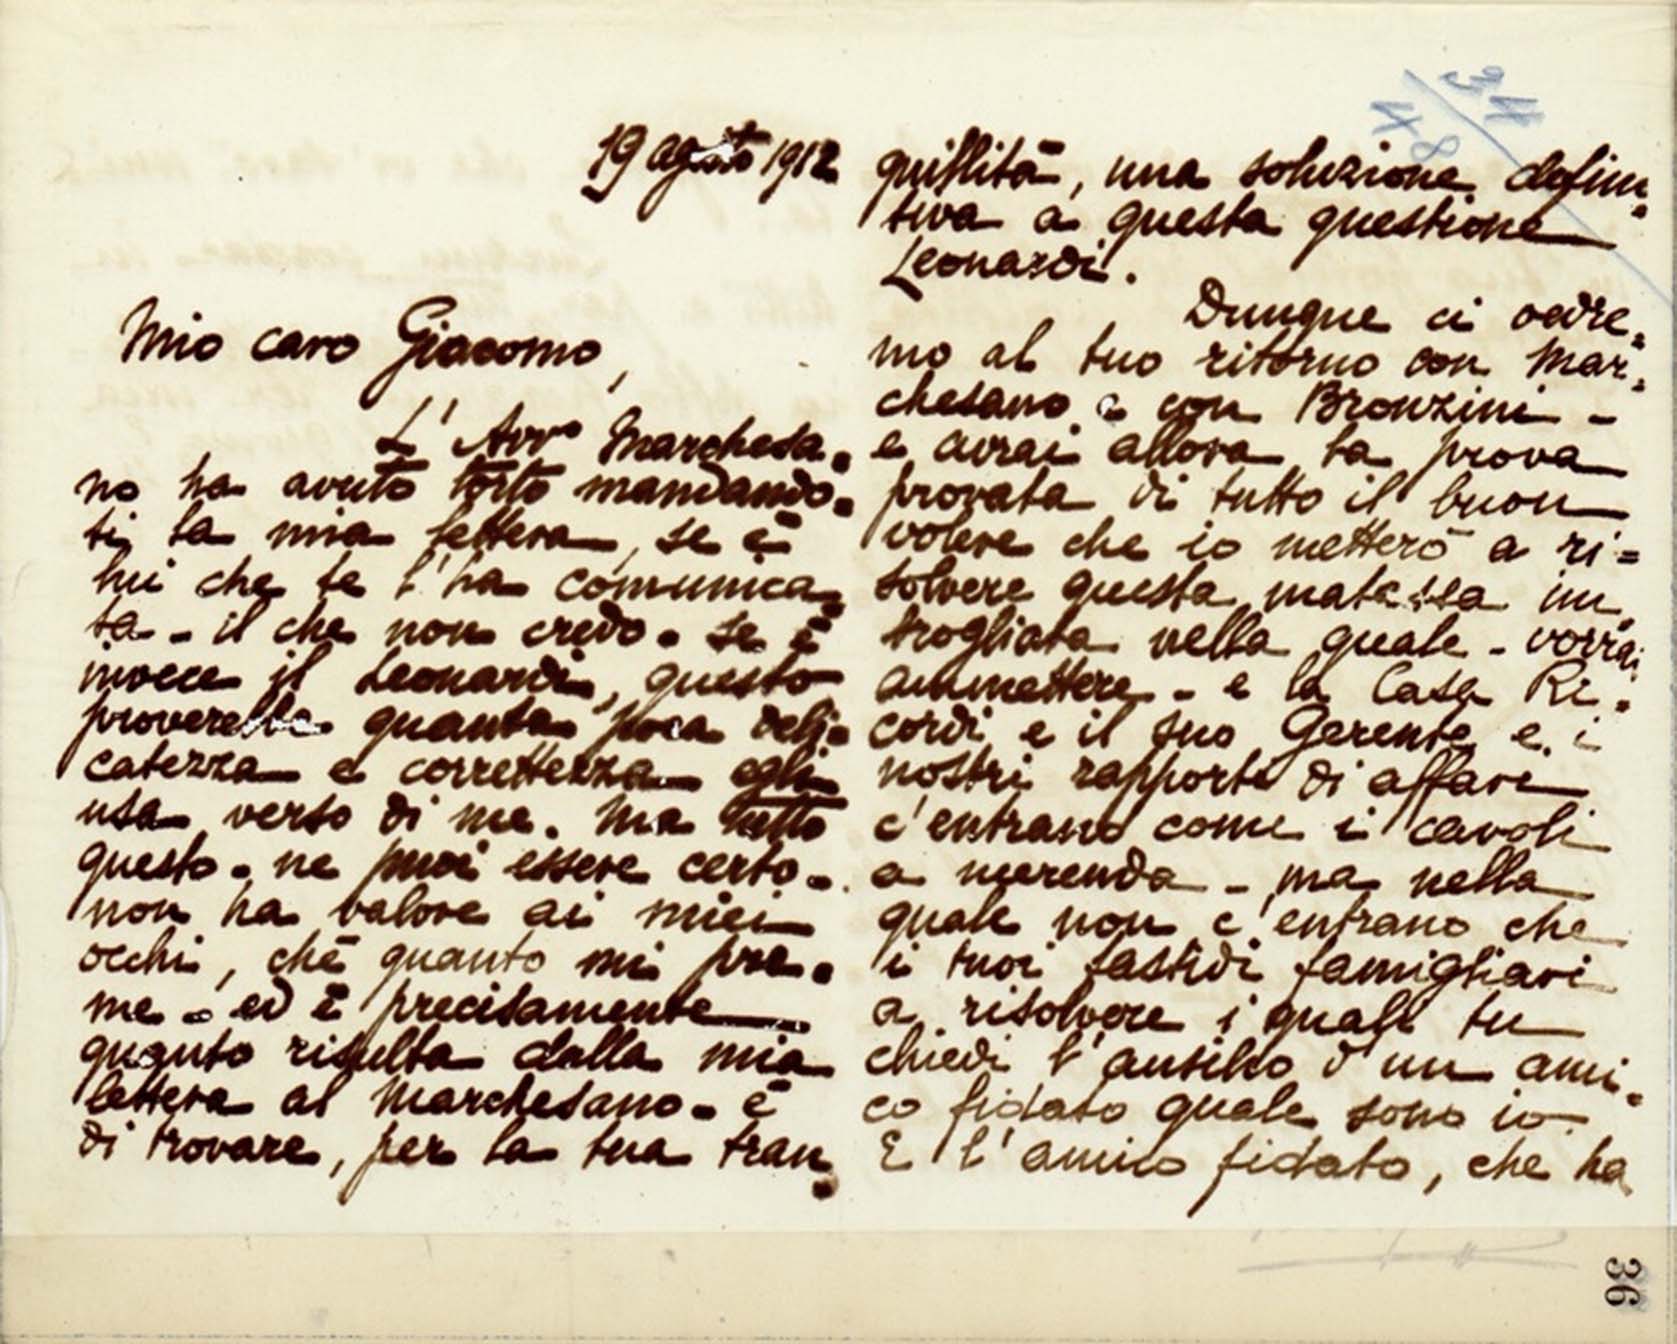 19 agosto 1912
Mio caro Giacomo,
L'Avvo Marchesa=
no ha avuto torto mandando=
ti la mia lettera, se è
lui che te l'ha comunica=
ta - il che non credo. Se è
invece il Leonardi, questo
proverebbe quanta poca deli=
catezza e correttezza egli
usa verso di me. Ma tutto
questo - ne puoi essere certo -
non ha valore ai miei
occhi, chè quanto mi pre=
me - ed è precisamente
quanto risulta dalla mia
lettera al Marchesano - è
di trovare, per la tua tran=
quillità, una soluzione defini=
tiva a questa questione
Leonardi.
Dunque ci vedre=
mo al tuo ritorno con Mar=
chesano e con Bronzini -
e avrai allora la prova
provata di tutto il buon
volere che io metterò a ri=
solvere questa matassa im=
brogliata nella quale - vorrai
ammettere - e la Casa Ri=
cordi e il suo Gerente e i
nostri rapporti di affari
c'entrano come i cavoli
a merenda - ma nella
quale non c'entrano che
i tuoi fastidi famigliari
a risolvere i quali tu
chiedi l'ausilio d'un ami=
co fidato quale sono io.
E l'amico fidato, che ha
36